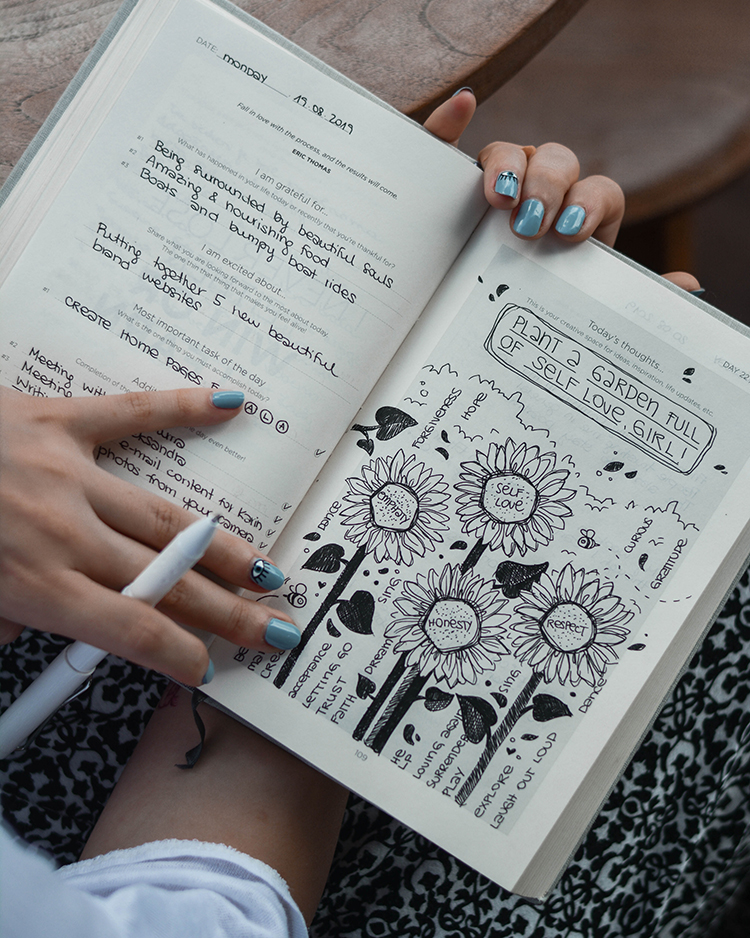 DATE: monday 19.08.2019
Fall in love with the process, and the results will come.
ERIC THOMAS
I am grateful for...
What has happened in your life today or recently that you're thankful for?
#1 Being surrounded by beautiful souls
#2 Amazing & nourishing food
#3 Boats and bumpy boat rides
I am excited about...
Share what you are looking forward to the most about today.
The one thin that thing that makes you feel alive!
Putting together 5 new beautiful
brand websites
Most important task of the day
What is the one thing you must accomplish today?
#1 create Home pages F ALA
Completion of the
#2 Meeting with
#3 Meeting
day even better!
e-mail content for Karin
photos from your camera
DAY 22
Today's thoughts...
This is your creative space for ideas, inspiration, life updates, etc.
PLANT A GARDEN FULL
OF SELF LOVE, GIRL!
FORGIVENESS
HOPE
EMPATHY
SELF
LOVE
DANCE
CURIOUS
GRATITUDE
SING
HONESTY
RESPECT
acceptance
LETTING GO
TRUST
FAITH
Dream
SING
DANCE
HE
LP
LOVING AGAIN
SURRENDER
PLAY
EXPLORE
LAUGH OUT LOUD
109